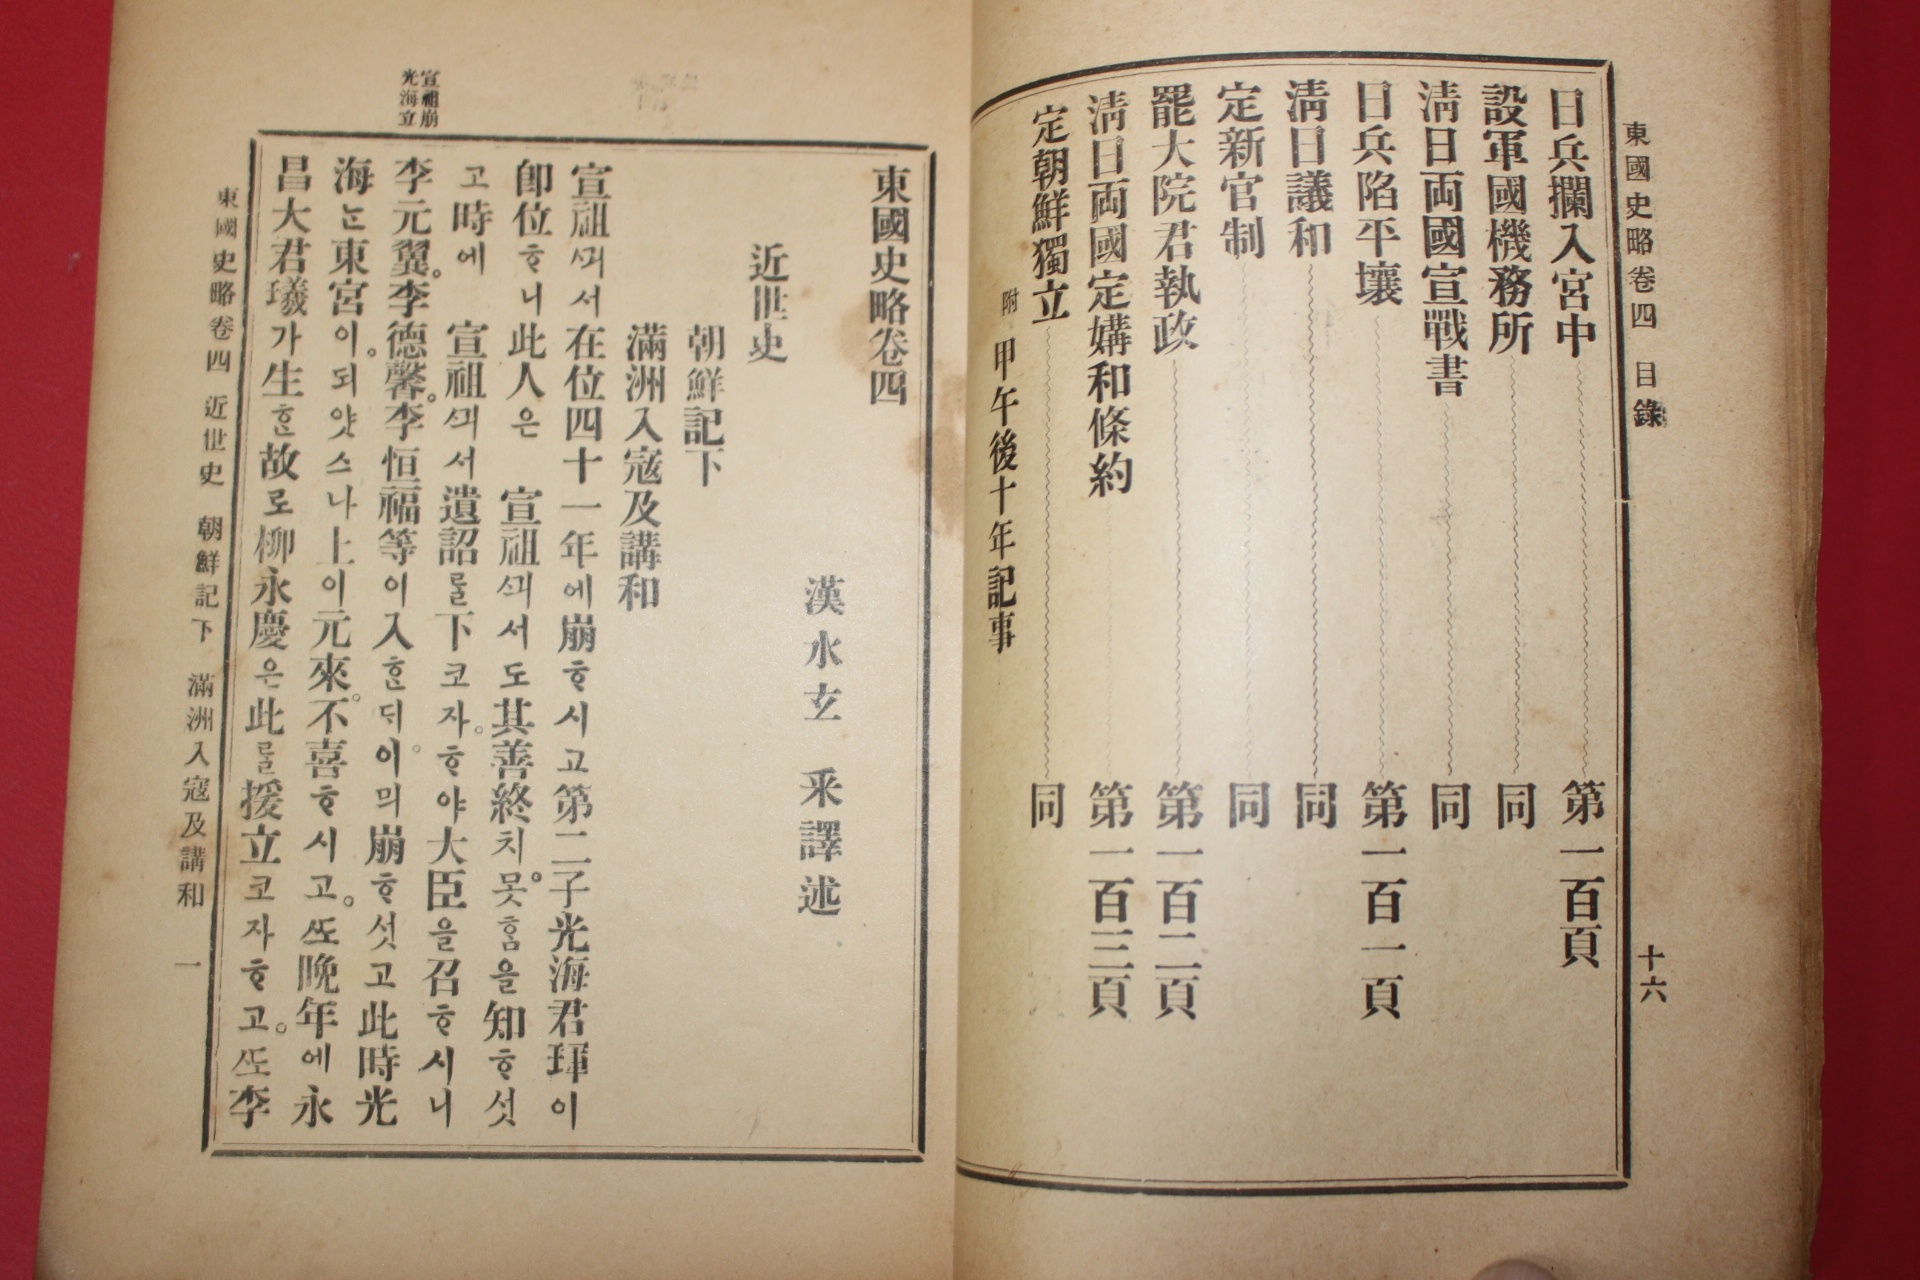 東國史略卷四 目錄 十六
日兵攔入宮中 第一百頁
設軍國機務所 同
淸日両國宣戰書 同
日兵陷平壤 第一百一頁
淸日議和 同
定新官制 同
罷大院君執政 第一百二頁
淸日両國定媾和條約 第一百三頁
定朝鮮獨立 同
附 甲午後十年記事
東國史略卷四
漢水玄 采譯述
近世史
朝鮮記下
滿洲入寇及講和
宣祖崩
光海立
宣祖ᄭᅴ서 在位四十一年에崩ᄒᆞ시고第二子光海君琿이
卽位ᄒᆞ니此人은 宣祖ᄭᅴ서도其善終치못ᄒᆞᆷ을知ᄒᆞ섯
고時에 宣祖ᄭᅴ서遺詔ᄅᆞᆯ下코자ᄒᆞ야大臣을召ᄒᆞ시니
李元翼。李德馨。李恒福等이入ᄒᆞᆫ듸。이믜崩ᄒᆞ섯고此時光
海ᄂᆞᆫ東宮이。되얏스나上이元來。不喜ᄒᆞ시고。ᄯᅩ晩年에永
昌大君㼁가生ᄒᆞᆫ故로柳永慶은此ᄅᆞᆯ援立코자ᄒᆞ고。ᄯᅩ李
東國史略卷四 近世史 朝鮮記下 滿洲入寇及講和 一